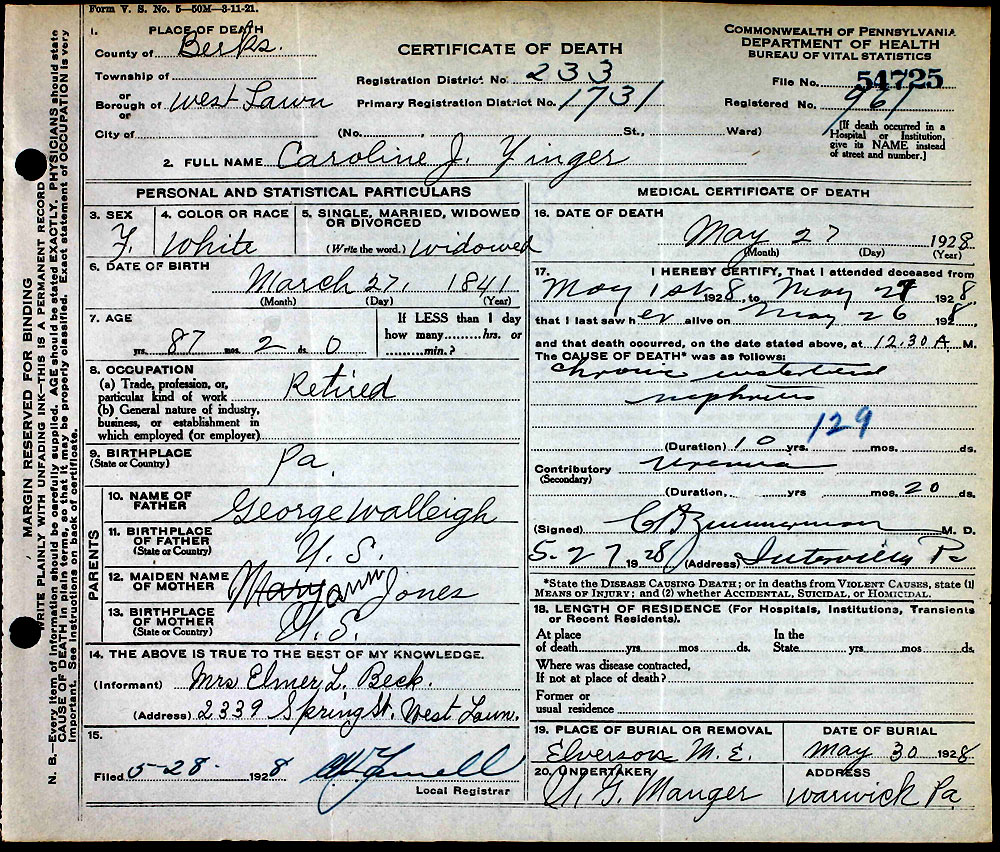 Form V. S. No. 5—50M—3-11-21.
1. PLACE OF DEATH
County of Berks.
Township of
or
Borough of West Lawn
or
City of
CERTIFICATE OF DEATH
Registration District No. 233
Primary Registration District No. 1731
(No. , St., Ward)
COMMONWEALTH OF PENNSYLVANIA
DEPARTMENT OF HEALTH
BUREAU OF VITAL STATISTICS
File No. 54725
Registered No. 961
[If death occurred in a
Hospital or Institution,
give its NAME instead
of street and number.]
2. FULL NAME Caroline J. Yinger
PERSONAL AND STATISTICAL PARTICULARS
3. SEX
F.
4. COLOR OR RACE
White
5. SINGLE, MARRIED, WIDOWED
OR DIVORCED
(Write the word.) Widowed
6. DATE OF BIRTH
March 27, 1841
(Month) (Day) (Year)
7. AGE
87 yrs. 2 mos. 0 ds.
If LESS than 1 day
how many hrs. or
min.?
8. OCCUPATION
(a) Trade, profession, or,
particular kind of work Retired
(b) General nature of industry,
business, or establishment in
which employed (or employer)
9. BIRTHPLACE
(State or Country) Pa.
PARENTS
10. NAME OF
FATHER George Walleigh
11. BIRTHPLACE
OF FATHER
(State or Country) U. S.
12. MAIDEN NAME
OF MOTHER Mary Ann Jones
13. BIRTHPLACE
OF MOTHER
(State or Country) U. S.
14. THE ABOVE IS TRUE TO THE BEST OF MY KNOWLEDGE.
(Informant) Mrs Elmer L. Beck.
(Address) 2339 Spring St. West Lawn.
15.
Filed 5-28- 1928
Local Registrar
MEDICAL CERTIFICATE OF DEATH
16. DATE OF DEATH
May 27 1928
(Month) (Day) (Year)
17. I HEREBY CERTIFY, That I attended deceased from
May 1st 1928, to May 27 1928.
that I last saw her alive on May 26 1928.
and that death occurred, on the date stated above, at 12.30 A. M.
The CAUSE OF DEATH* was as follows:
Chronic interstitial
nephritis
129
(Duration) 10 yrs. mos. ds.
Contributory Uremia
(Secondary)
(Duration, yrs mos. 20 ds.
(Signed) Zimmerman M. D.
5-27 1928 (Address) Pa
*State the DISEASE CAUSING DEATH; or in deaths from VIOLENT CAUSES, state (1)
MEANS OF INJURY; and (2) whether ACCIDENTAL, SUICIDAL, OR HOMICIDAL.
18. LENGTH OF RESIDENCE (For Hospitals, Institutions, Transients
or Recent Residents).
At place In the
of death yrs. mos ds. State yrs. mos ds.
Where was disease contracted,
If not at place of death?
Former or
usual residence
19. PLACE OF BURIAL OR REMOVAL
Elverson M. E.
DATE OF BURIAL
May 30 1928
20. UNDERTAKER
Manger
ADDRESS
Warwick Pa
MARGIN RESERVED FOR BINDING
WRITE PLAINLY WITH UNFADING INK—THIS IS A PERMANENT RECORD
N. B.—Every item of information should be carefully supplied. AGE should be stated EXACTLY. PHYSICIANS should state
CAUSE OF DEATH in plain terms, so that it may be properly classified. Exact statement of OCCUPATION is very
important. See instructions on back of certificate.